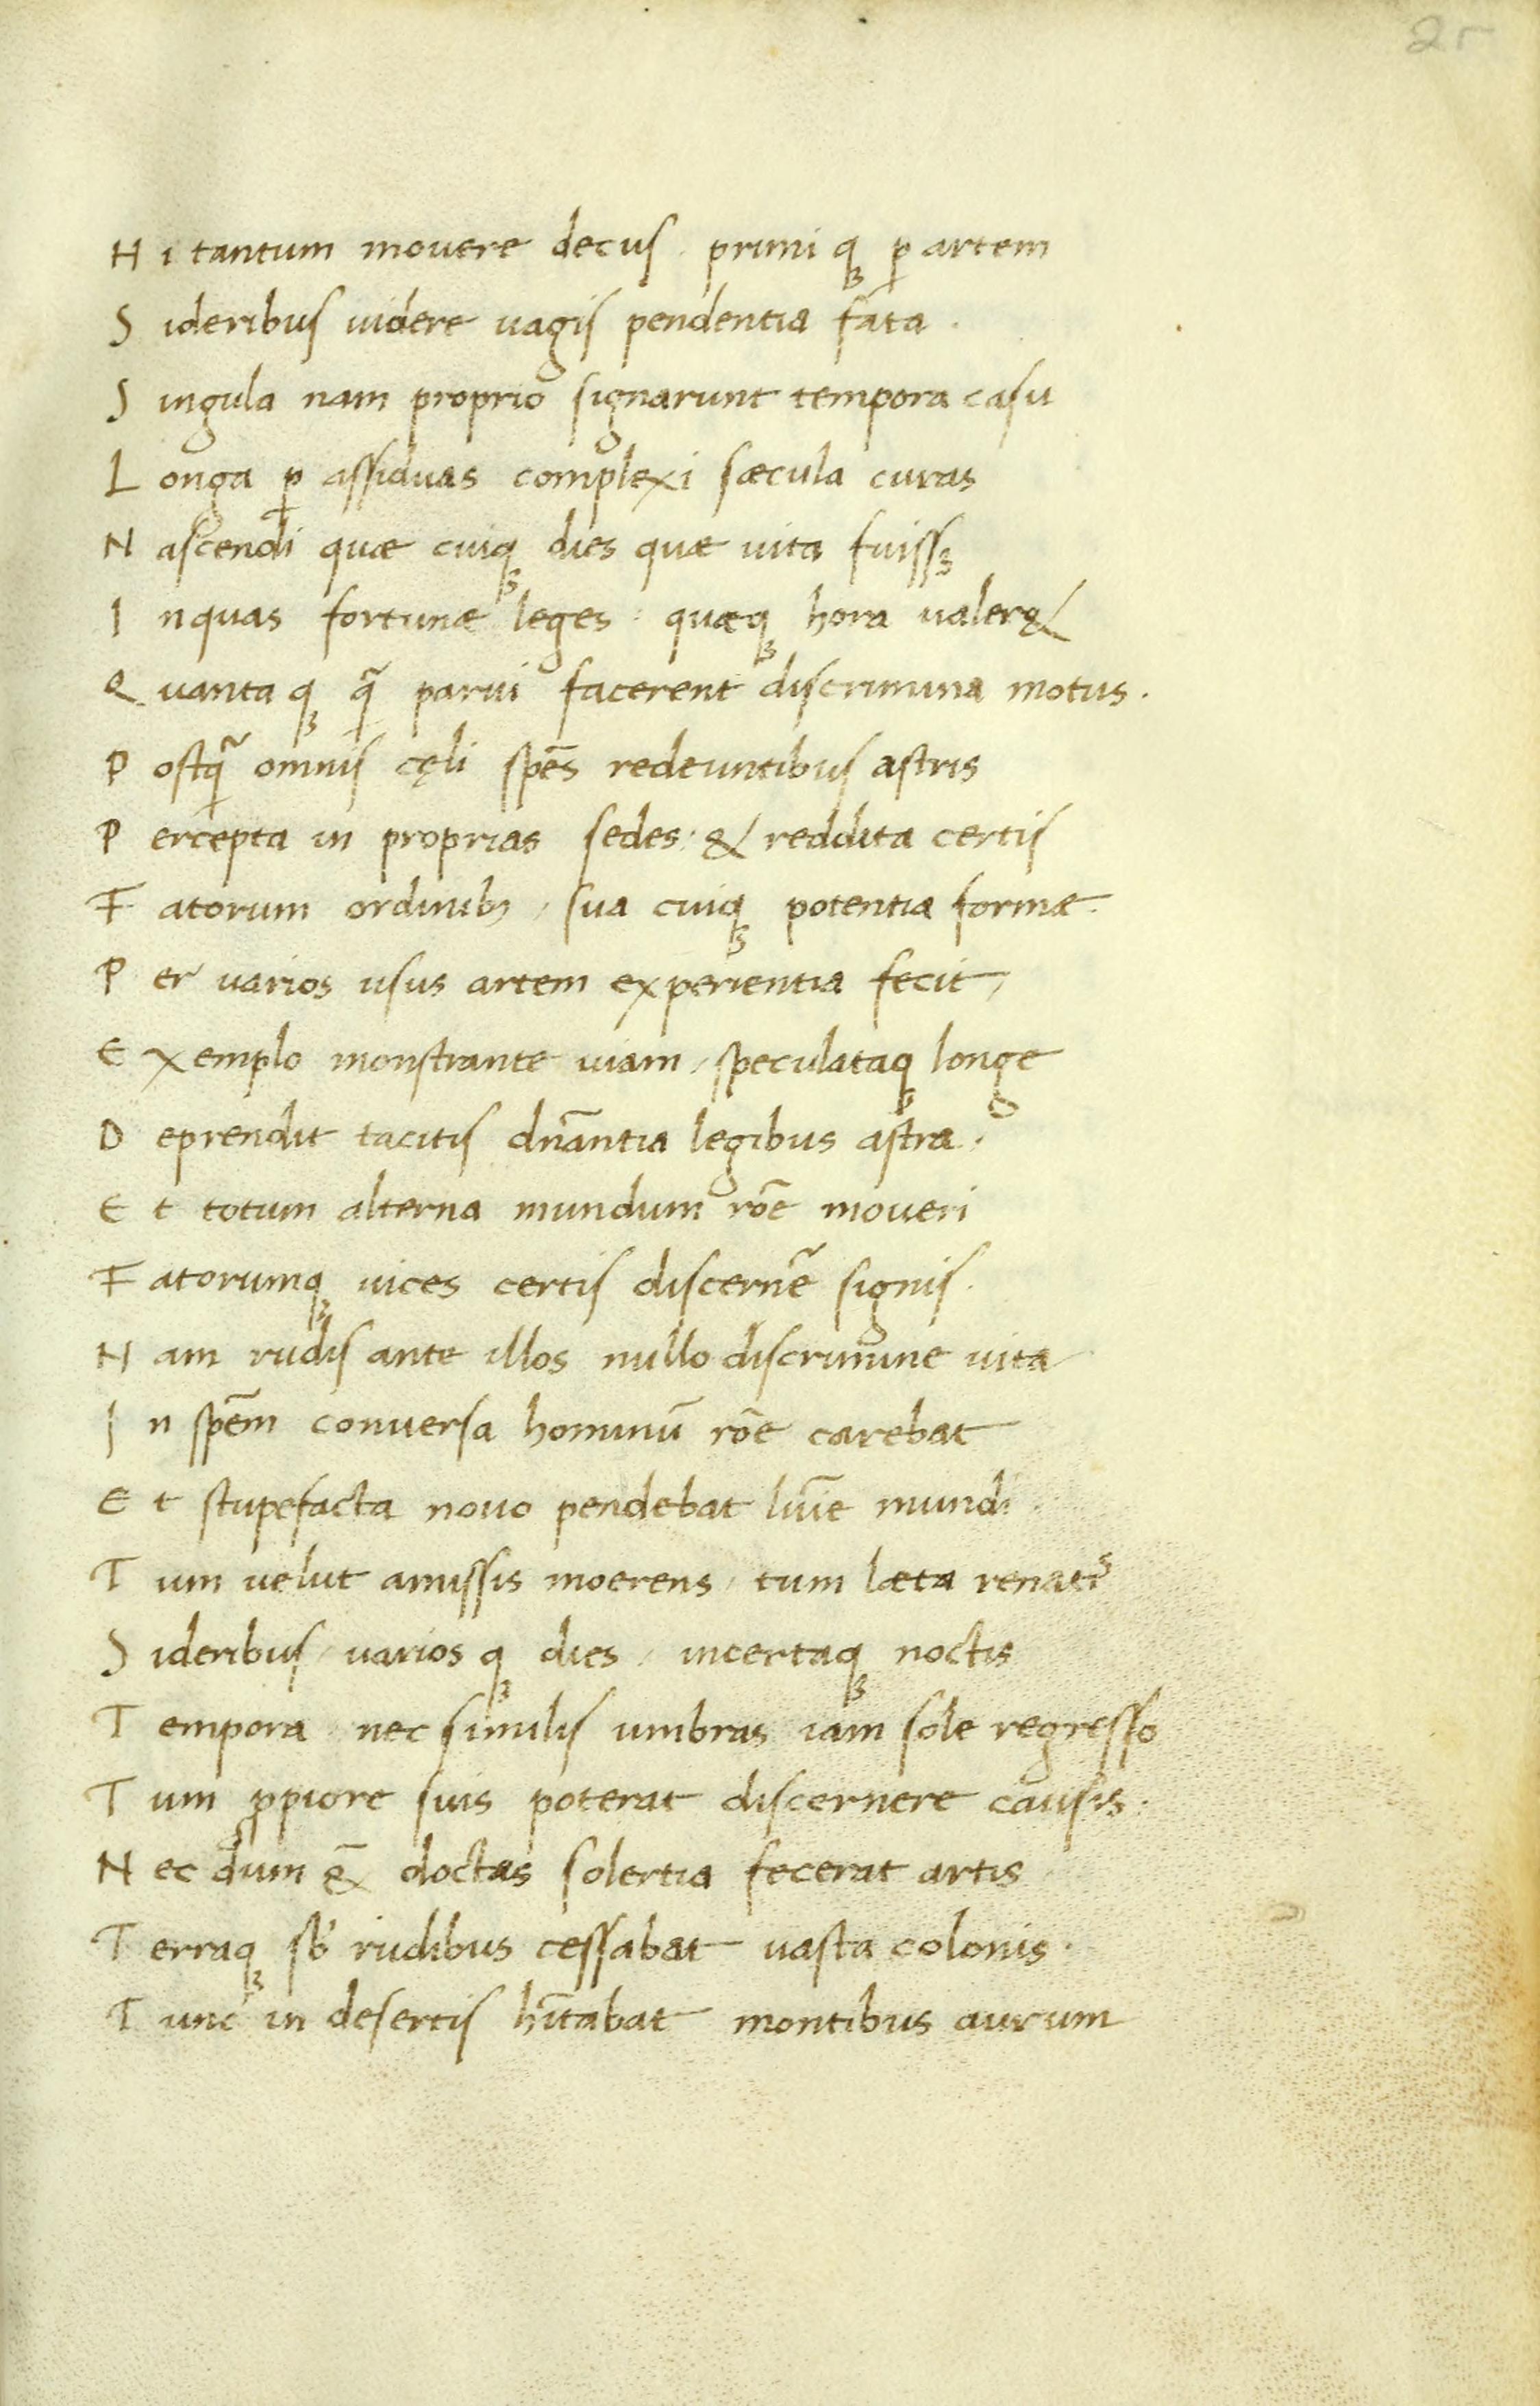 2r
H i tantum mouere decus · primi qꝫ ꝑ artem
S ideribus uidere uagis pendentia fata ·
S ingula nam proprio signarunt tempora casu
L onga ꝑ assiduas complexi sæcula curas
N ascendi quæ cuiqꝫ dies quæ uita fuissꝫ
I nquas fortunæ leges : quæqꝫ hora ualer&
Q uanta qꝫ q̃ parui facerent discrimina motus ·
P ostq̃ omnis cęli spēs redeuntibus astris
P ercepta in proprias sedes : & reddita certis
F atorum ordinibꝫ , sua cuiqꝫ potentia formæ ·
P er uarios usus artem experientia fecit ,
E xemplo monstrante uiam , speculataqꝫ longe
D eprendit tacitis dn̄antia legibus astra ·
E t totum alterna mundum rōe moueri
F atorumqꝫ uices certis discernē signis ·
N am rudis ante illos nullo discrimine uita
I n spēm conuersa hominū rōe carebat
E t stupefacta nouo pendebat lūīe mundi ·
T um uelut amissis moerens , tum læta renatis
S ideribus , uarios qꝫ dies , incertaqꝫ noctis
T empora · nec similis umbras iam sole regresso
T um ꝓpiore suis poterat discernere causis ·
N ec dum &̄ doctas solertia fecerat artis
T erraqꝫ sb' rudibus cessabat uasta colonis ·
T unc in desertis hītabat montibus aurum